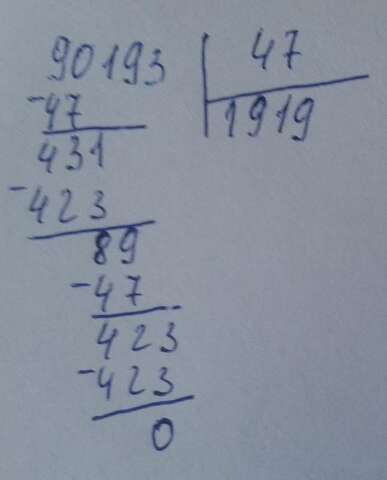 90193 | 47
-47 1919
431
-423
89
-47
423
-423
0